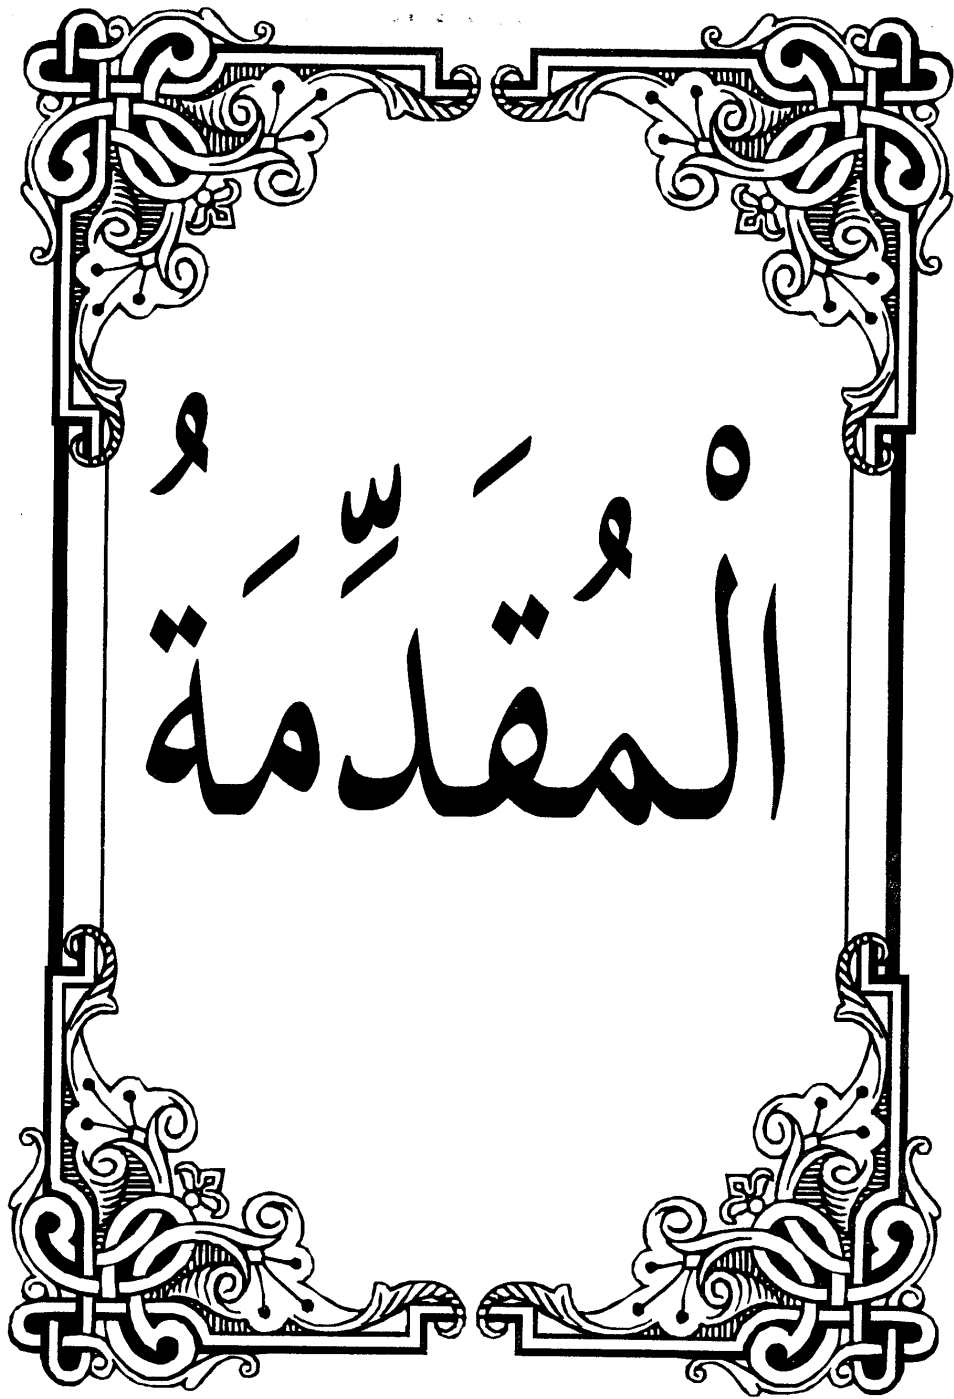 الْمُقَدِّمَةُ